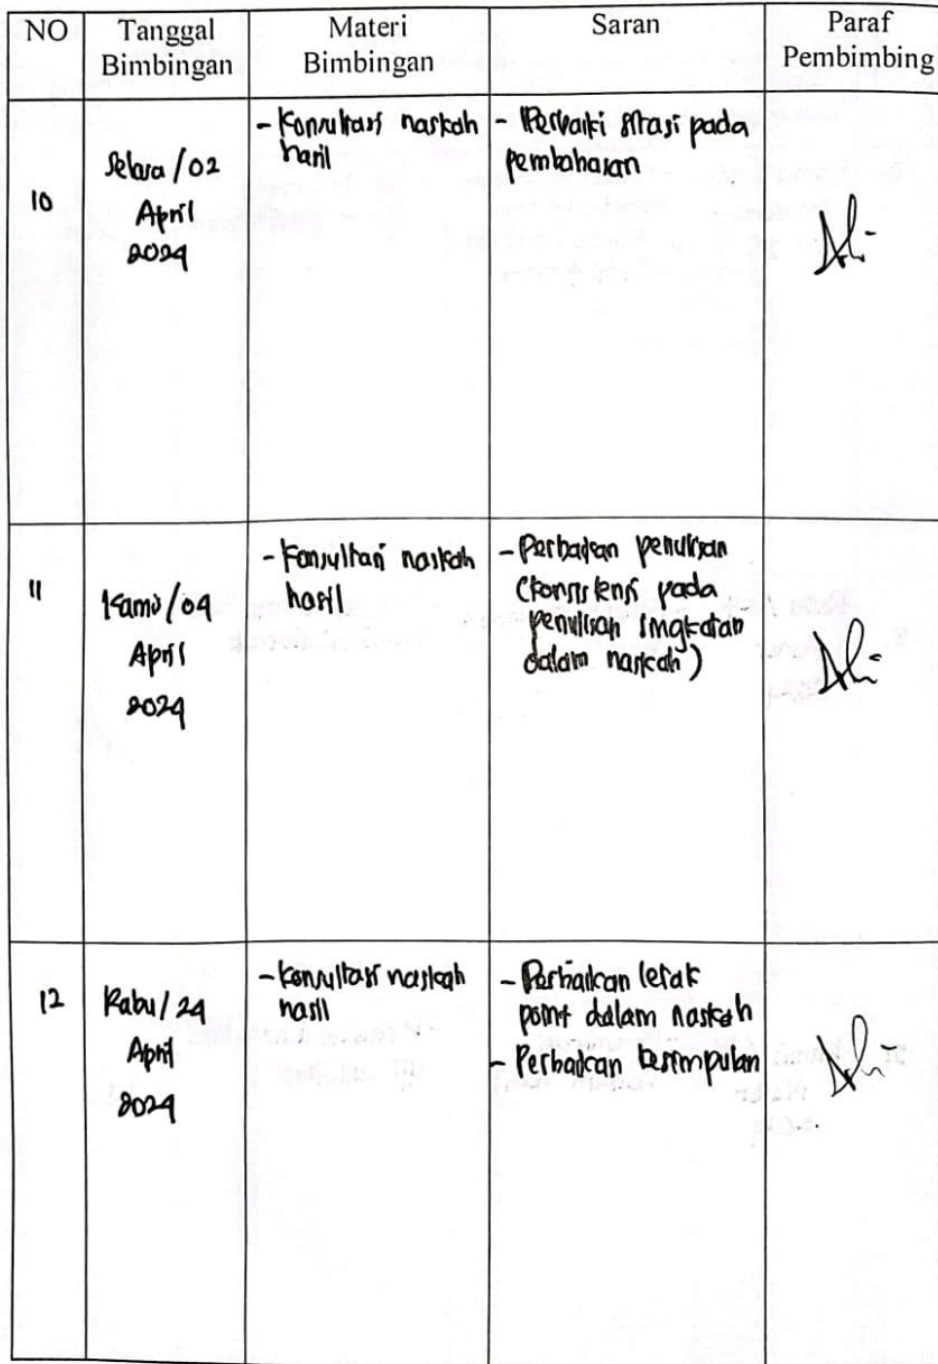 NO
Tanggal
Bimbingan
Materi
Bimbingan
Saran
Paraf
Pembimbing
10
Selasa / 02
April
2024
- Konsultasi naskah
hasil
- Perbaiki sitasi pada
pembahasan
11
Kamis / 04
April
2024
- Konsultasi naskah
hasil
- Perbaikan penulisan
(konsistensi pada
penulisan singkatan
dalam naskah)
12
Rabu / 24
April
2024
- Konsultasi naskah
hasil
- Perbaikan letak
point dalam naskah
- Perbaikan kesimpulan